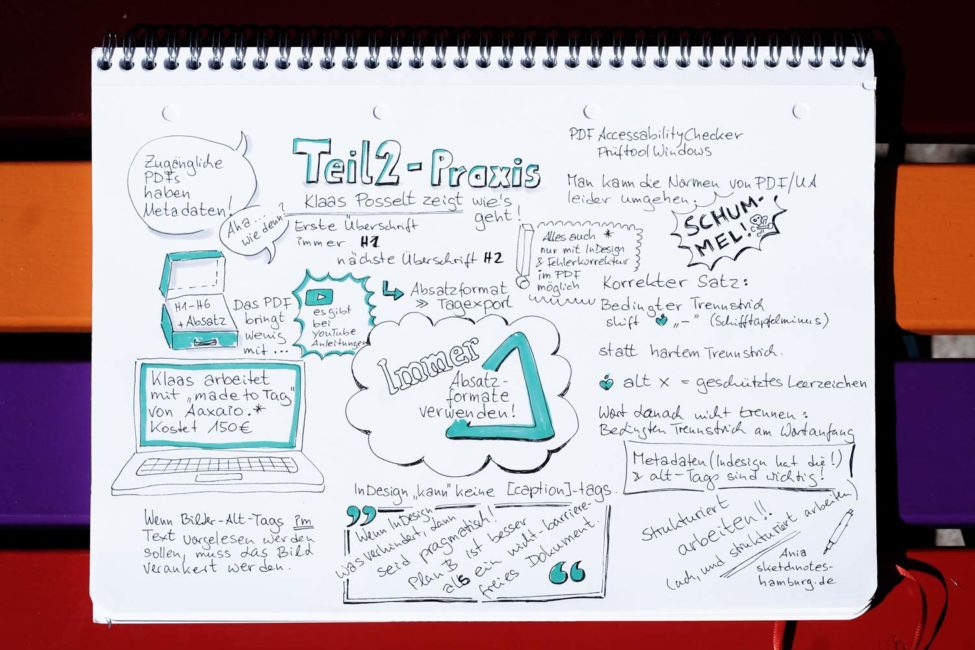 Zugängliche
PDFs
haben
Metadaten!
Aha...
wie denn?
Teil 2 - Praxis
Klaas Posselt zeigt wie's
geht!
Erste Überschrift
immer H1
nächste Überschrift H2
Absatzformat
» Tagexport
Alles auch *
nur mit InDesign
& Fehlerkorrektur
im PDF
möglich
H1-H6
+ Absatz
Das PDF
bringt
wenig
mit ...
es gibt
bei
YouTube
Anleitungen
Klaas arbeitet
mit „made to Tag"
von Axaio.*
Kostet 150€
Immer
Absatz-
formate
verwenden!
InDesign „kann" keine [caption]-tags
Wenn Bilder-Alt-Tags im
Text vorgelesen werden
sollen, muss das Bild
verankert werden.
Wenn InDesign
was verhindert, dann
seid pragmatisch!
Plan B ist besser
als ein nicht barriere-
freies Dokument.
PDF AccessabilityChecker
Prüftool Windows
Man kann die Normen von PDF/UA
leider umgehen.
SCHUM-
MEL!
Korrekter Satz:
Bedingter Trennstrich
shift „-" (Schifftapfelminus)
statt hartem Trennstrich.
alt x = geschütztes Leerzeichen
Wort danach nicht trennen:
Bedingten Trennstrich am Wortanfang
Metadaten (Indesign hat die!)
& alt-Tags sind wichtig!
strukturiert
arbeiten!!
(ach, und strukturiert arbeiten)
Ania
sketchnotes-
hamburg.de